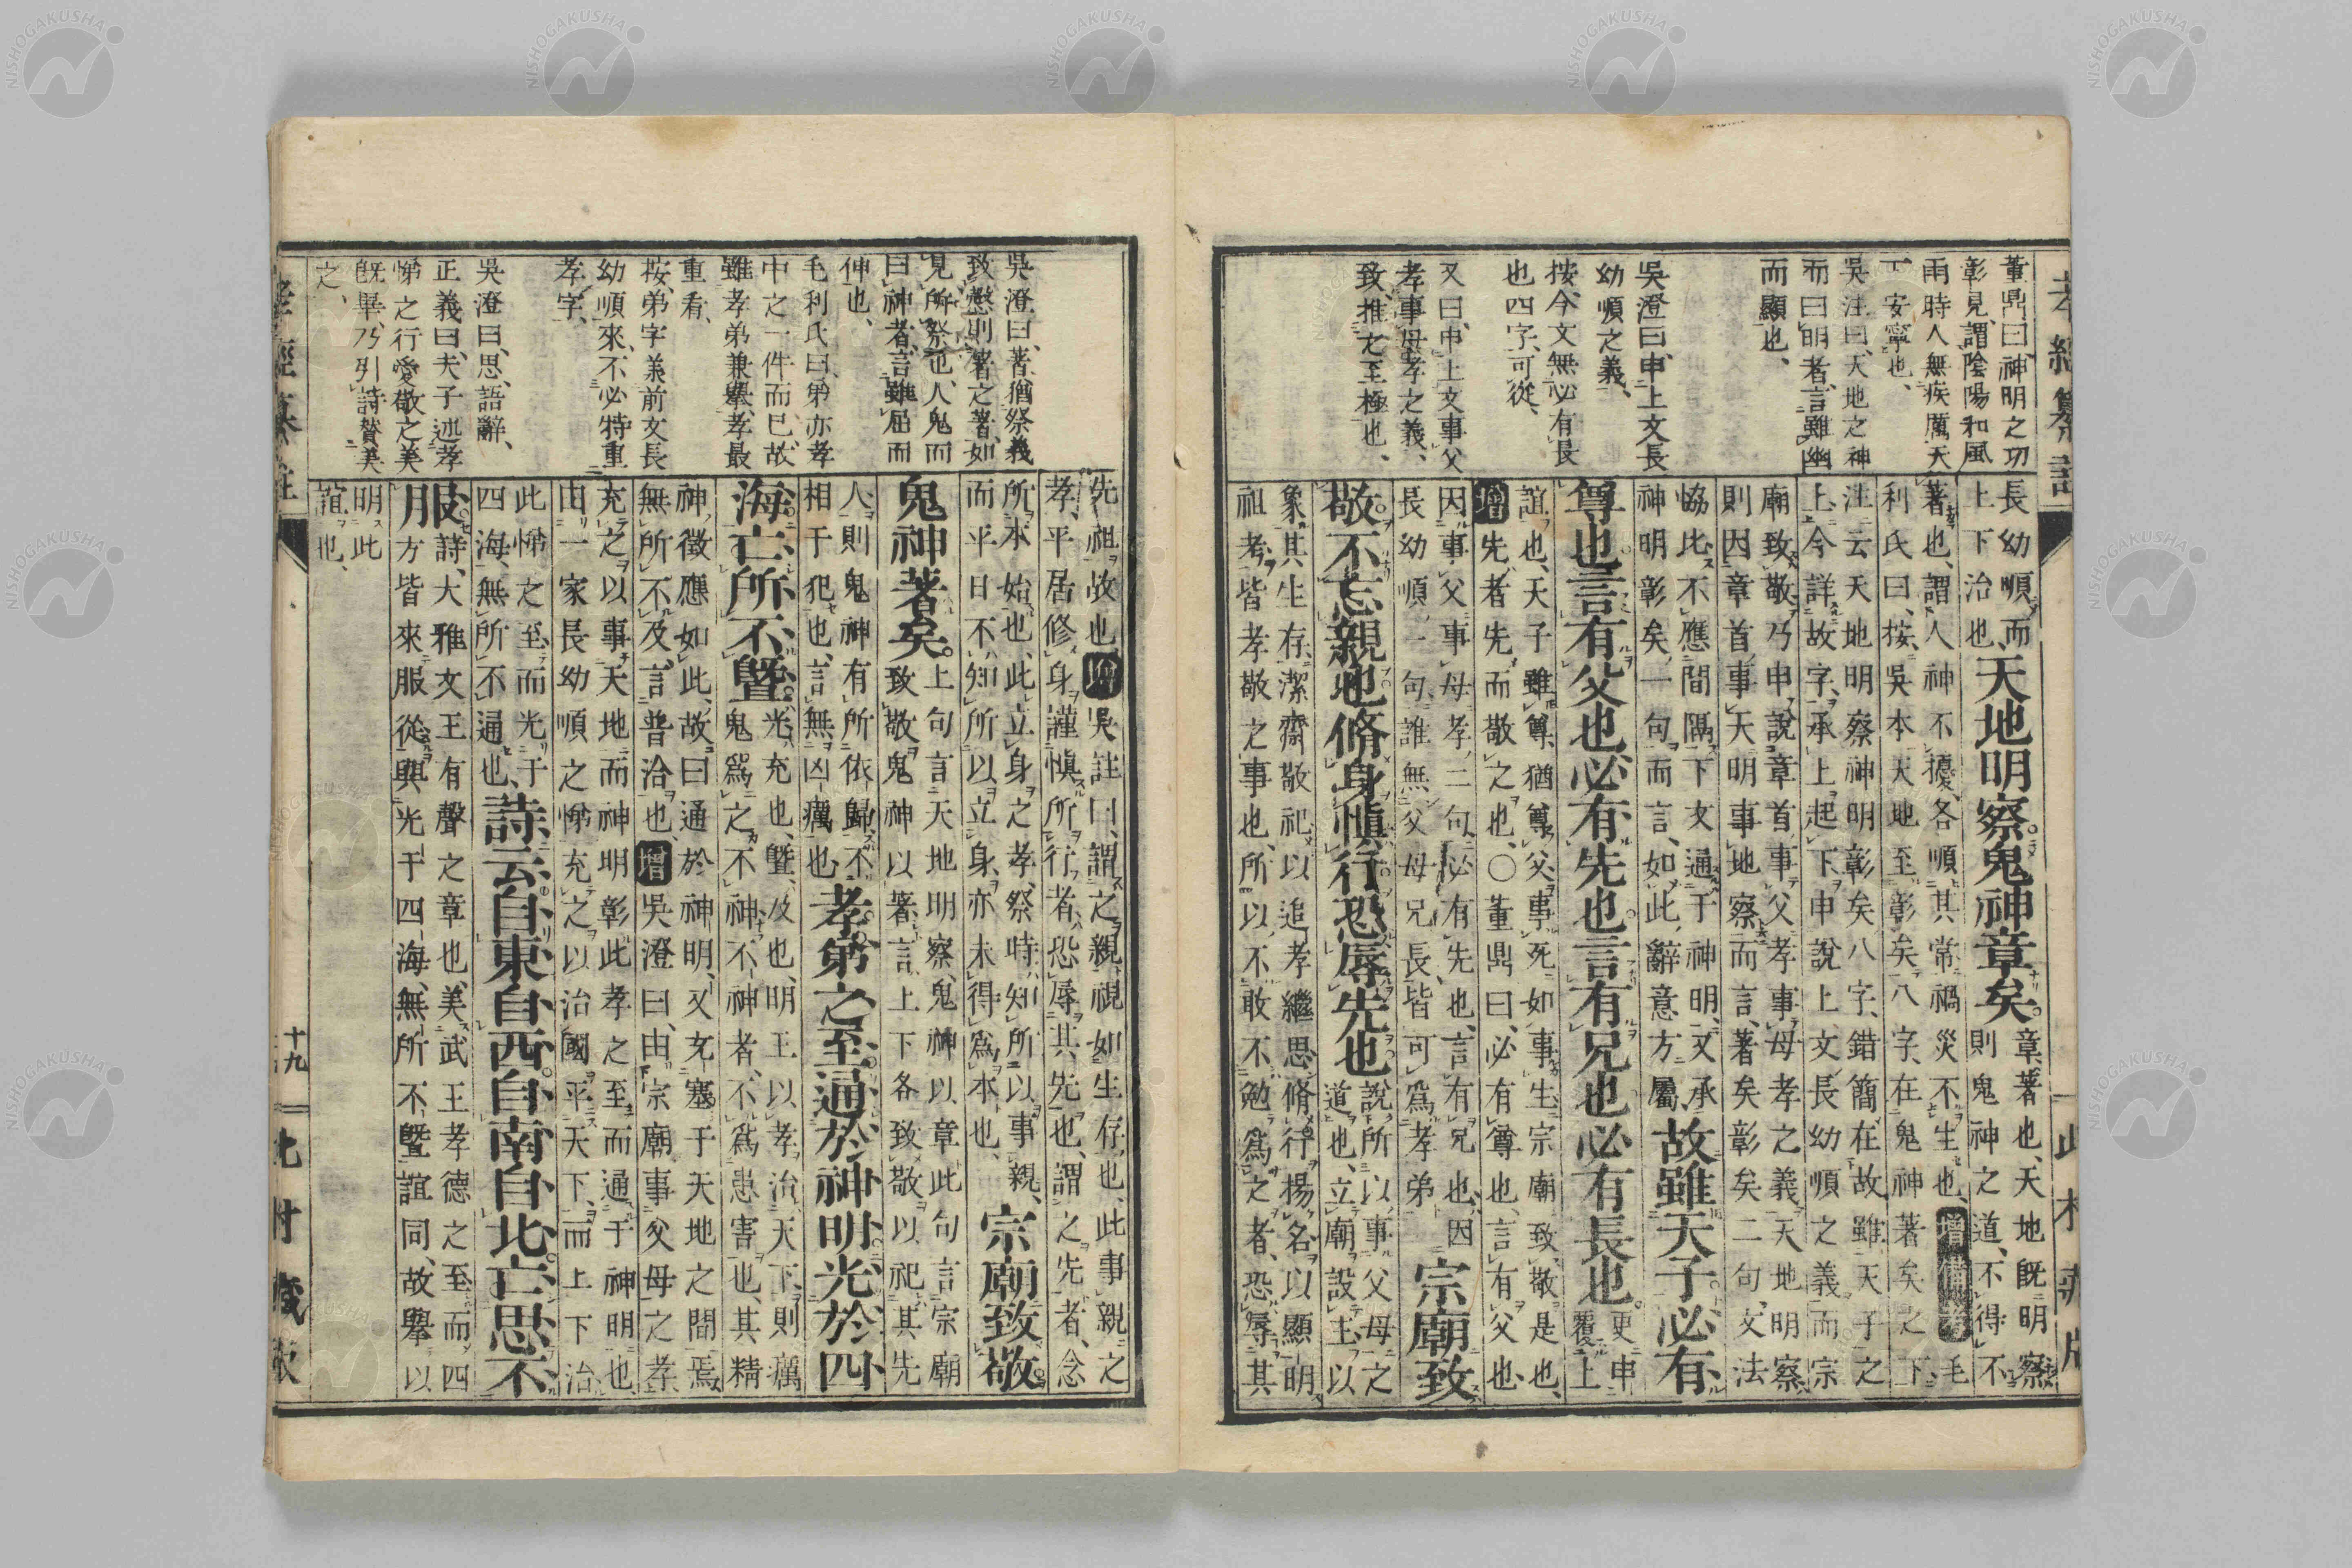 孝經纂註
此木藏版
董鼎曰、神明之功
彰見、謂陰陽和風
雨時人無疾厲天
下安寧也、
吳注曰、天地之神
而曰明者、言雖幽
而顯也、
吳澄曰、申上文長
幼順之義、
按今文無必有長
也四字、可從、
又曰、申上文事父
孝事母孝之義、
致、推之至極也、
長幼順而
上下治也、
天地明察。鬼神章矣。
章著也、天地既明察
則鬼神之道、不得不
著也、謂人神不擾、各順其常、禍災不生也、增備考毛
利氏曰、按、吳本天地至彰矣八字、在鬼神著矣之下、
注云天地明察神明彰矣八字、錯簡在故雖天子之
上、今詳故字、承上起下、申說上文長幼順之義、而宗
廟致敬、乃申說章首事父孝、事母孝之義、天地明察、
則因章首事天明、事地察、而言、著矣彰矣二句、文法
協比、不應間隔、下文通于神明、又承
神明彰矣一句而言、如此、辭意方屬、
故雖天子必有
尊也。言有父也必有先也。言有兄也必有長也。
更申
覆上
誼也、天子雖尊、猶尊父、事死如事生、宗廟致敬是也、
增先者先而敬之也、○董鼎曰、必有尊也、言有父也、
因事父事母孝二句、必有先也、言有兄也、因
長幼順一句、誰無父母兄長、皆可爲孝弟
宗廟致
敬。不忘親也。脩身愼行恐辱先也
說所以事父母之
道也、立廟設主、以
象其生存、潔齋敬祀、以追孝繼思、脩行揚名、以顯明
祖考、皆孝敬之事也、所以不敢不勉爲之者、恐辱其
吳澄曰、著猶祭義
致愨則著之著、如
見所祭也、人鬼而
曰神者、言雖屈而
伸也、
毛利氏曰、弟亦孝
中之一件而已、故
雖孝弟兼擧、孝最
重看、
按、弟字義前文長
幼順來、不必特重
孝字、
吳澄曰、思、語辭、
正義曰、夫子述孝
悌之行愛敬之美
既畢、乃引詩贊美
之、
先祖故也、增吳註曰、謂之親、視如生存也、此事親之
孝、平居修身謹愼所行者、恐辱其先也、謂之先者、念
所本始也、此立身之孝、祭時知所以事親、
而平日不知所以立身、亦未得爲本也、
宗廟致敬。
鬼神著矣。
上句言天地明察、鬼神以章、此句言宗廟
致敬鬼神以著、言上下各致敬、以祀其先
人、則鬼神有所依歸、不
相干犯也、言無凶癘也、
孝弟之至。通於神明。光於四
海。亡所不曁。
光充也、曁及也、明王以孝治天下、則癘
鬼爲之不神、不神者、不爲患害也、其精
神徵應如此、故曰通於神明、又充塞于天地之間焉、
無所不及、言普洽也、增吳澄曰、由宗廟事父母之孝
充之以事天地、而神明彰、此孝之至而通于神明也
由一家長幼順之悌、充之以治國平天下、而上下治
此悌之至、而光于
四海、無所不通也、
詩云自東自西。自南自北。亡思不
服。
詩、大雅文王有聲之章也、美武王孝德之至、而四
方皆來服從與光于四海、無所不曁誼同、故擧以
明此
誼也、
孝經纂註
十九
此木藏版